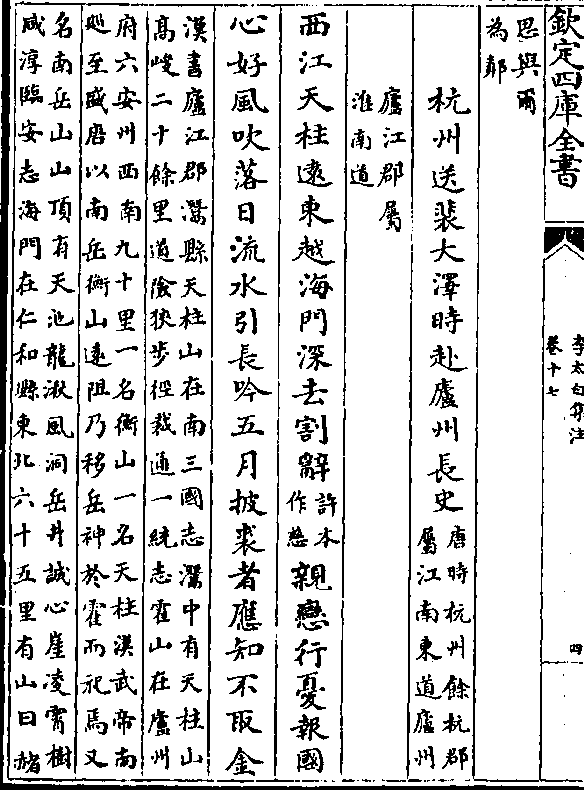 欽定四庫全書
李太白集注
卷十七
四
思與爾
為鄰
杭州送裴大澤時赴廬州長史唐時杭州餘杭郡
屬江南東道廬州
廬江郡屬
淮南道
西江天柱遠東越海門深去割辭許本
作慈親戀行憂報國
心好風吹落日流水引長吟五月披裘者應知不取金
漢書廬江郡灊縣天柱山在南三國志灊中有天柱山
高峻二十餘里道險狹步徑裁通一統志霍山在廬州
府六安州西南九十里一名衡山一名天柱漢武帝南
廵至盛唐以南岳衡山遠阻乃移岳神於霍而祀焉又
名南岳山山頂有天池龍湫風洞岳井誠心崖凌霄樹
咸淳臨安志海門在仁和縣東北六十五里有山曰赭